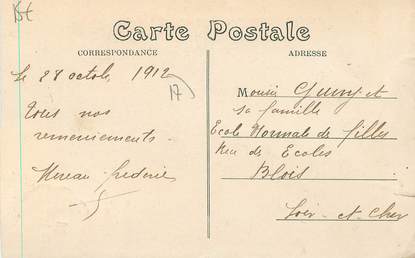 Bt
Carte Postale
CORRESPONDANCE
ADRESSE
Le 28 octob. 1912
17
Tous nos
remerciements.
Moreau frederic
M onsieur et
sa famille
Ecole Normale de filles
Rue de Ecoles
Blois
Loir et Cher